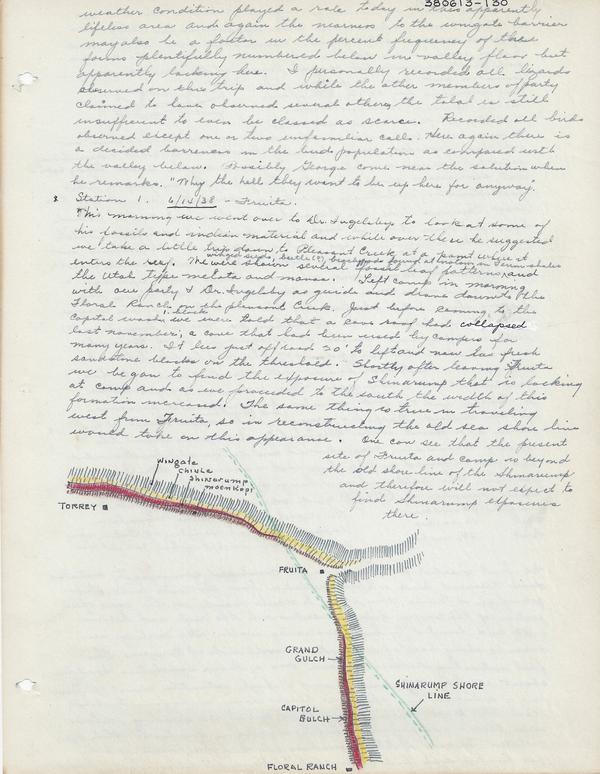 380613-130
weather condition played a role today in this apparently
lifeless area and again the nearness to the wingate barrier
may also be a factor in the percent frequency of these
forms plentifully numbered below in valley floor but
apparently lacking here. I personally recorded all lizards
observed on this trip and while the other members of party
claimed to have observed several others, the total is still
insufficient to even be classed as scarce. Recorded all birds
observed except one or two unfamiliar calls. Here again there is
a decided barreness in the bird population as compared with
the valley below. Possibly George came near the solution when
he remarks. "Why the hell they want to be up here for anyway.
Station 1. 6/14/38 - Fruita.
This morning we went over to Dr. Inglesby to look at some of
his fossils and indian material and while over there he suggested
we take a little trip down to Pleasant Creek at a point where it
enters the reef. We were shown several fossil leaf patterns, and
winged seeds, beetle (?)
the Utah Type metate and manos. Left camp in morning
with our party & Dr. Inglesby as guide and drove down to the
Floral Ranch on the pleasant Creek. Just before coming to the
Capitol wash, we were told that a cave roof had collapsed
last november, a cave that had been used by campers for
many years. It lies just off road 20' to left and now has fresh
sandstone blocks on the threshold. Shortly after leaving Fruita
we began to find the exposure of Shinarump that is lacking
at camp and as we proceeded to the south the width of this
formation increased. The same thing is true in traveling
west from Fruita, so in reconstructing the old sea shore line
would take on this appearance. One can see that the present
site of Fruita and camp is beyond
the old shore line of the Shinarump
and therefore will not expect to
find Shinarump exposures
there.
Wingate
Chinle
Shinarump
Moenkopi
TORREY
FRUITA
GRAND
GULCH
SHINARUMP SHORE
LINE
CAPITOL
GULCH
FLORAL RANCH